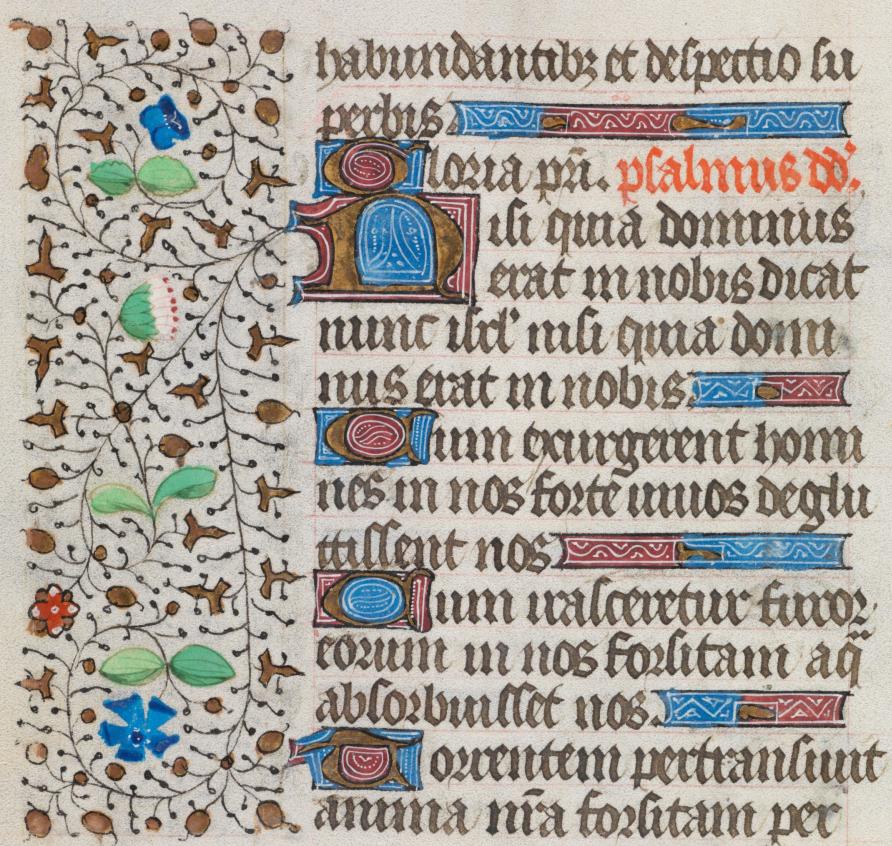 habundantibȝ et despectio su
perbis
Gloria pr̄i. psalmus dd̓.
Nisi quia dominus
erat in nobis dicat
nunc isrl̓ nisi quia domi
nus erat in nobis
Cum exurgerent homi
nes in nos forte uiuos deglu
tissent nos
Cum irasceretur furor
eorum in nos forsitam aq̄
absorbuisset nos
Torrentem pertransiuit
anima nr̄a forsitam per